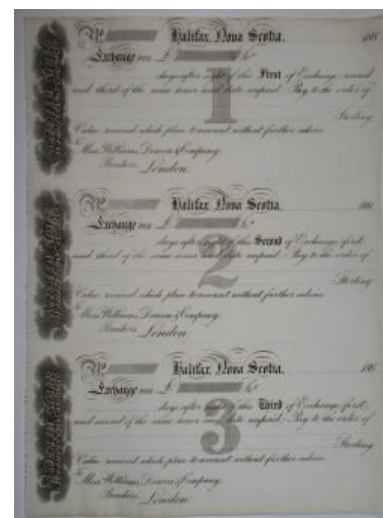 No Halifax, Nova Scotia, 186
Exchange £
1
days after sight of this First of Exchange second
and third of the same tenor and date unpaid Pay to the order of
Sterling
Value received which place to account without further advice
To
Mess. Williams, Deacon & Company.
Bankers London.
No Halifax, Nova Scotia, 186
Exchange £
2
days after sight of this Second of Exchange first
and third of the same tenor and date unpaid Pay to the order of
Sterling
Value received which place to account without further advice
To
Mess. Williams, Deacon & Company.
Bankers London.
No Halifax, Nova Scotia, 186
Exchange £
3
days after sight of this Third of Exchange first
and second of the same tenor and date unpaid Pay to the order of
Sterling
Value received which place to account without further advice
To
Mess. Williams, Deacon & Company.
Bankers London.